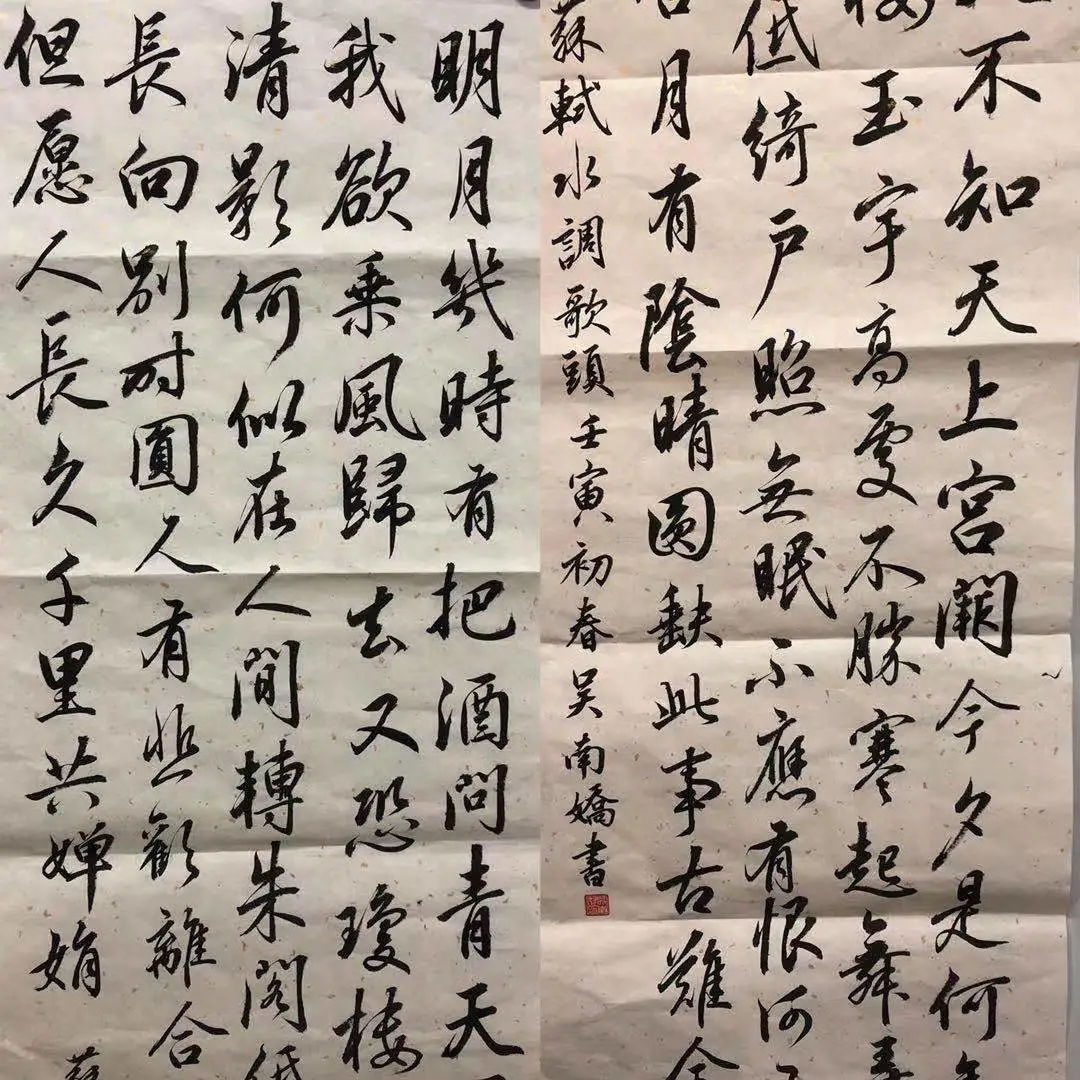 明月幾時有把酒問青天
我欲乘風歸去又恐瓊樓
清影何似在人間轉朱閣
長向別时圓人有悲歡離合
但愿人長久千里共嬋娟
不知天上宮闕今夕是何
玉宇高處不勝寒起舞
低綺户照無眠不應有恨何
月有陰晴圓缺此事古難
蘇軾水調歌頭壬寅初春吴南嬌書